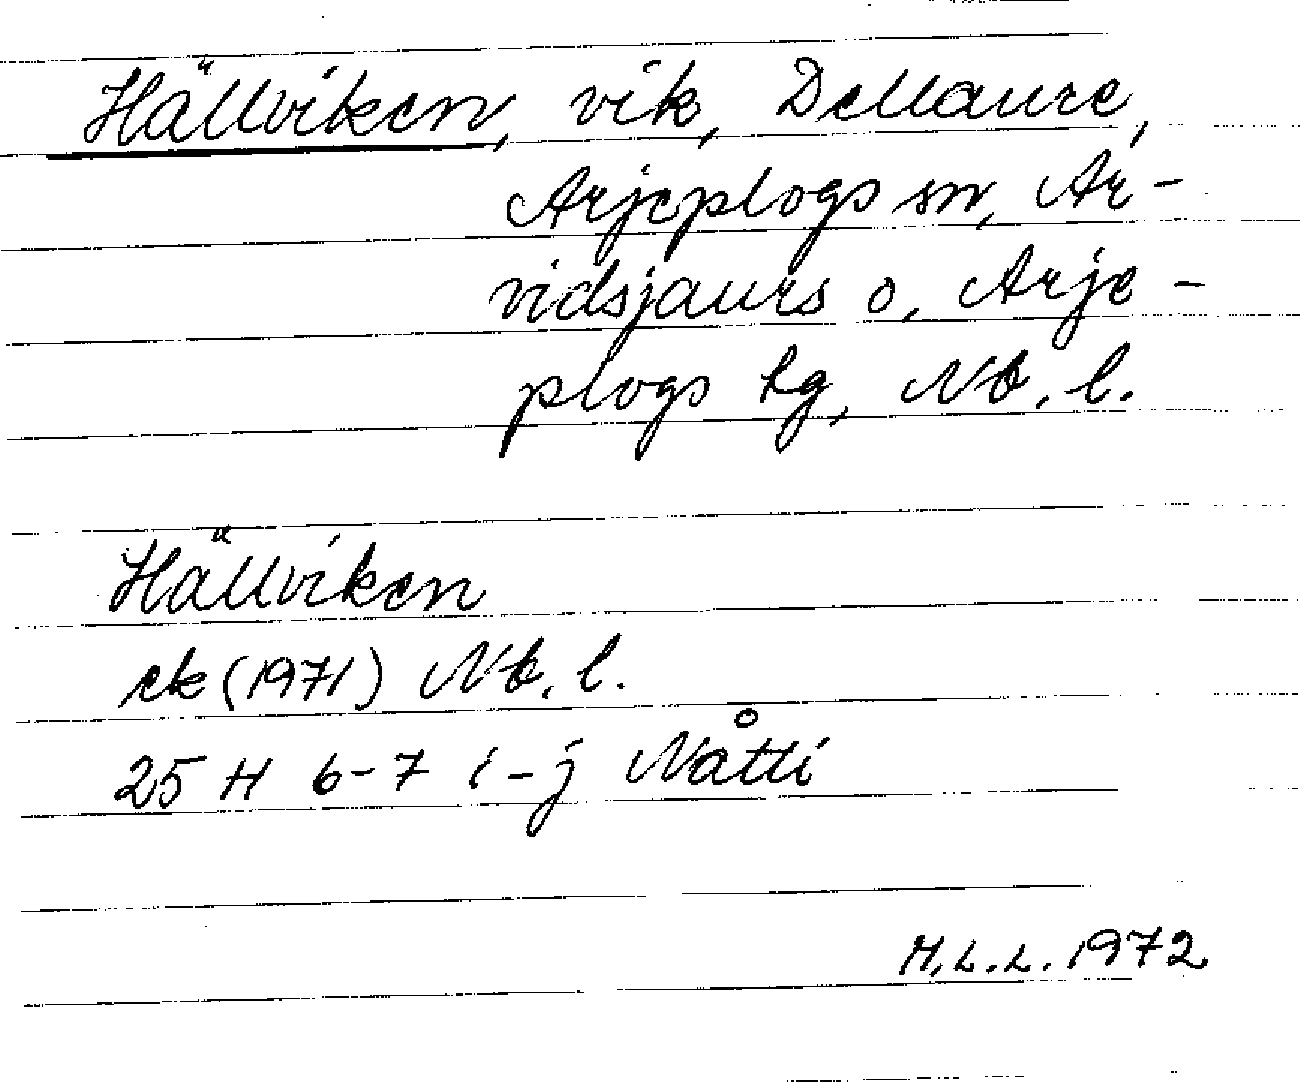 Hällviken, vik, Dellaure,
Arjeplogs sn, Ar-
vidsjaurs o, Arje-
plogs lg, Nb. l.
Hällviken
ek (1971) Nb. l.
25 H 6-7 i-j Nåtti
M.L.L. 1972